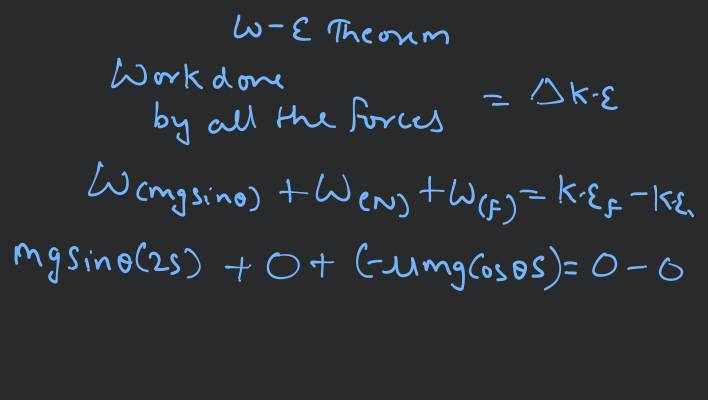 W-E Theorem
Work done
by all the forces = ΔK.E
W(mgsinθ) + W(N) + W(F) = K.E_F - K.E_i
mgsinθ(2S) + 0 + (-μmgCosθS) = 0 - 0